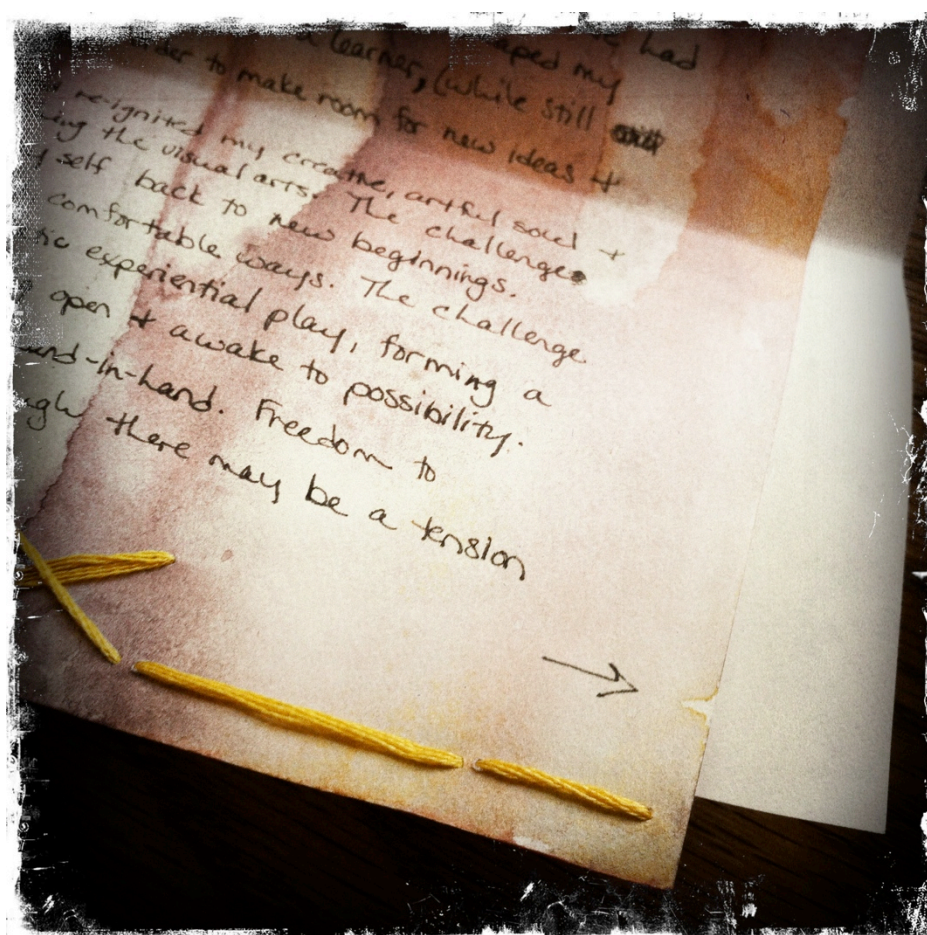 had
a learner, (while still
to make room for new ideas +
re-ignited my creative, artful soul +
the visual arts. The challenge
self back to new beginnings.
comfortable ways. The challenge
experiential play, forming a
open + awake to possibility.
hand-in-hand. Freedom to
there may be a tension
→